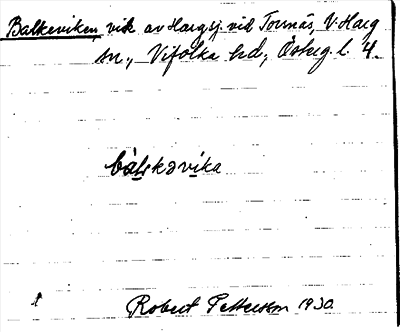 Balkeviken, vik av Hargsj. vid Tornäs, V. Harg
sn., Vifolka hd., Östeg. l. 4.
bálskəvika
t
Robert Pettersson 1930.